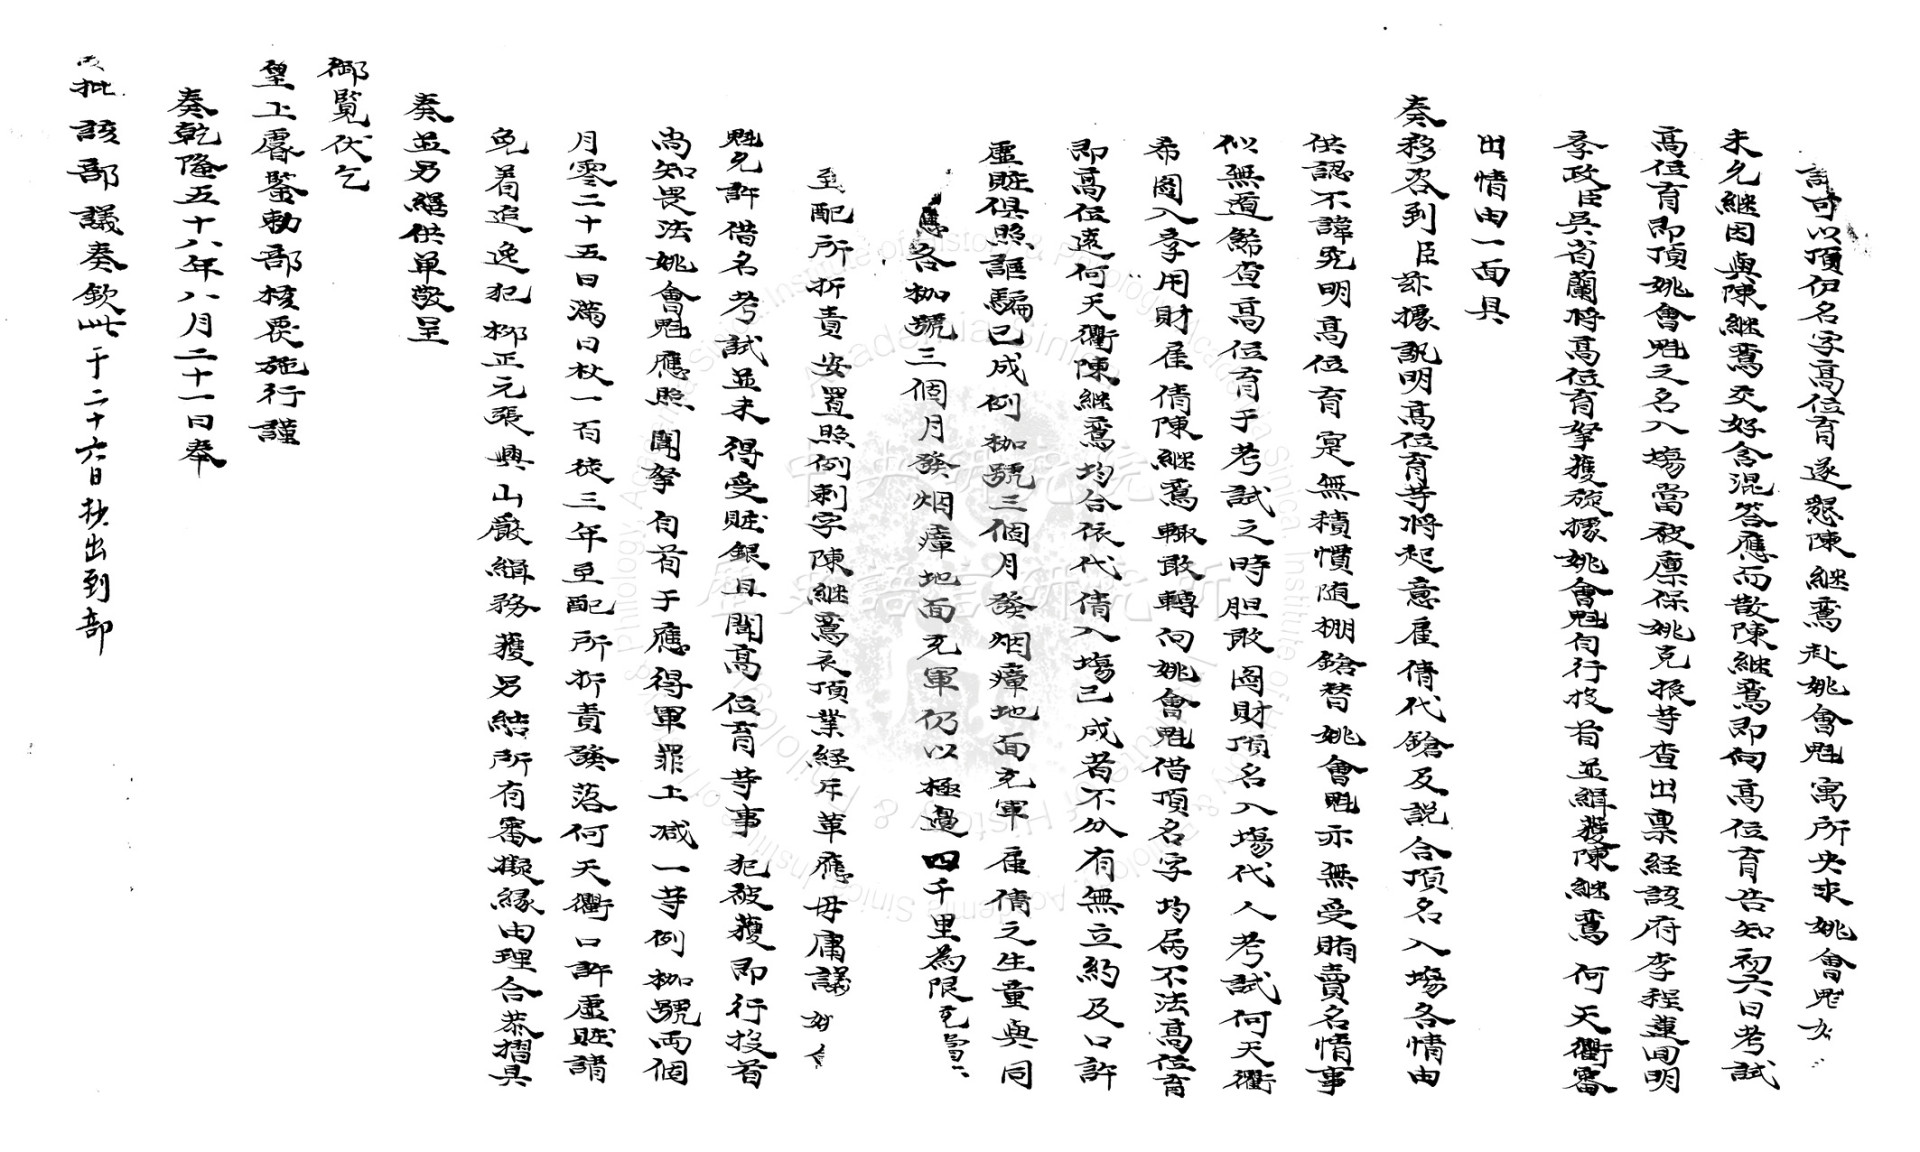 可以頂伊名字高位育遂懇陳継鳶赴姚會魁寓所央求姚會魁
未允継因與陳継鳶交好含混答應而散陳継鳶即向高位育告知初六日考試
高位育即頂姚會魁之名入塲當被廪保姚克振等查出禀經該府李程蓮囬明
李政臣吳省蘭將高位育拏獲旋據姚會魁自行投首並緝獲陳継鳶何天衢審
出情由一面具
奏移咨到臣茲據訊明高位育等将起意雇倩代鎗及説合頂名入塲各情由
供認不諱究明高位育寔無積慣随棚鎗替姚會魁亦無受賄賣名情事
似無遁餙查高位育于考試之時胆敢圖財頂名入塲代人考試何天衢
希圖入學用財雇倩陳継鳶輙敢轉向姚會魁借頂名字均屬不法高位育
即高位遠何天衢陳継鳶均合依代倩入塲已成者不分有無立約及口許
虛賍俱照誆騙已成例枷號三個月發烟瘴地面充軍雇倩之生童與同
應各枷號三個月發烟瘴地面充軍仍以極邉四千里為限
至配所折責安置照例刺字陳継鳶衣頂業経斥革應毋庸議
魁允許借名考試並未得受賍銀且聞高位育等事犯被獲即行投首
尚知畏法姚會魁應照聞拏自首于應得軍罪上减一等例枷號两個
月零二十五日滿日杖一百徒三年至配所折責發落何天衢口許虛賍請
免着追逸犯栁正元張興山嚴緝務獲另結所有審擬緣由理合恭摺具
奏並另繕供单敬呈
御覧伏乞
皇上睿鑒勅部核覆施行謹
奏乾隆五十八年八月二十一日奉
批該部議奏欽此于二十六日抄出到部